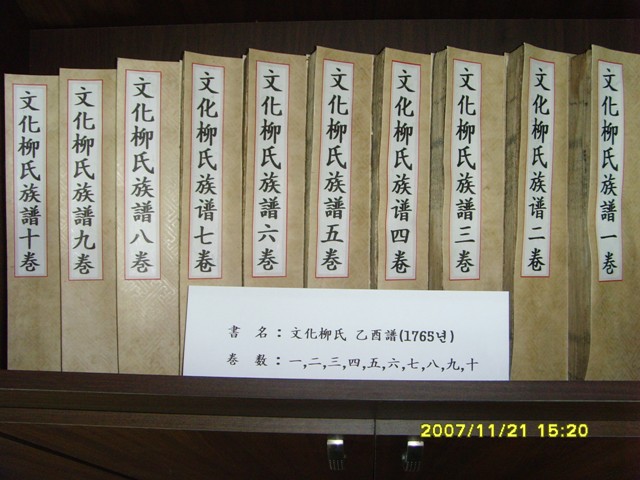 文化柳氏族譜十巻
文化柳氏族譜九巻
文化柳氏族譜八巻
文化柳氏族谱七巻
文化柳氏族譜六巻
文化柳氏族譜五巻
文化柳氏族谱四巻
文化柳氏族譜三巻
文化柳氏族谱二巻
文化柳氏族譜一巻
書 名 : 文化柳氏 乙酉譜(1765년)
巻 数 : 一,二,三,四,五,六,七,八,九,十
2007/11/21 15:20